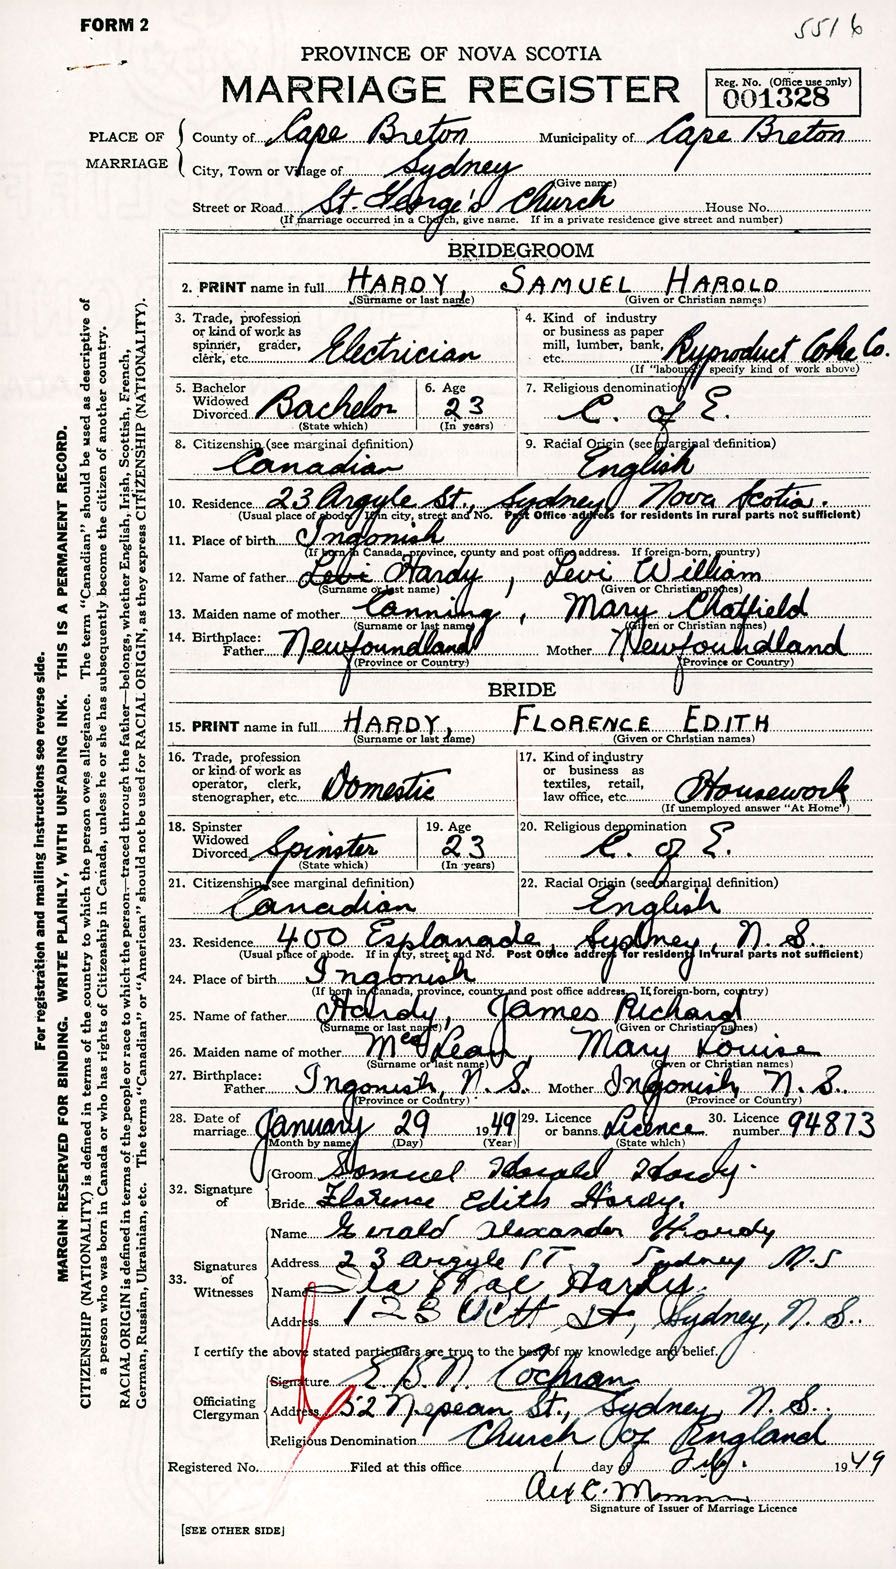 FORM 2
5516
PROVINCE OF NOVA SCOTIA
MARRIAGE REGISTER
Reg. No. (Office use only)
001328
PLACE OF MARRIAGE
County of Cape Breton Municipality of Cape Breton
City, Town or Village of Sydney
(Give name)
Street or Road St. George's Church House No.
(If marriage occurred in a Church, give name. If in a private residence give street and number)
BRIDEGROOM
2. PRINT name in full HARDY, SAMUEL HAROLD
(Surname or last name) (Given or Christian names)
3. Trade, profession or kind of work as spinner, grader, clerk, etc. Electrician
4. Kind of industry or business as paper mill, lumber, bank, etc. Byproduct Coke Co.
(If "labourer" specify kind of work above)
5. Bachelor Widowed Divorced Bachelor
(State which)
6. Age 23
(In years)
7. Religious denomination C. of E.
8. Citizenship (see marginal definition) Canadian
9. Racial Origin (see marginal definition) English
10. Residence 23 Argyle St., Sydney, Nova Scotia.
(Usual place of abode. If in city, street and No. Post Office address for residents in rural parts not sufficient)
11. Place of birth Ingonish
(If born in Canada, province, county and post office address. If foreign-born, country)
12. Name of father Levi Hardy, Levi William
(Surname or last name) (Given or Christian names)
13. Maiden name of mother Canning, Mary Chatfield
(Surname or last name) (Given or Christian names)
14. Birthplace: Father Newfoundland Mother Newfoundland
(Province or Country) (Province or Country)
BRIDE
15. PRINT name in full HARDY, FLORENCE EDITH
(Surname or last name) (Given or Christian names)
16. Trade, profession or kind of work as operator, clerk, stenographer, etc. Domestic
17. Kind of industry or business as textiles, retail, law office, etc. Housework
(If unemployed answer "At Home")
18. Spinster Widowed Divorced Spinster
(State which)
19. Age 23
(In years)
20. Religious denomination C. of E.
21. Citizenship (see marginal definition) Canadian
22. Racial Origin (see marginal definition) English
23. Residence 400 Esplanade, Sydney, N. S.
(Usual place of abode. If in city, street and No. Post Office address for residents in rural parts not sufficient)
24. Place of birth Ingonish
(If born in Canada, province, county and post office address. If foreign-born, country)
25. Name of father Hardy, James Richard
(Surname or last name) (Given or Christian names)
26. Maiden name of mother McLean, Mary Louise
(Surname or last name) (Given or Christian names)
27. Birthplace: Father Ingonish, N. S. Mother Ingonish, N. S.
(Province or Country) (Province or Country)
28. Date of marriage January 29 1949
Month by name) (Day) (Year)
29. Licence or banns Licence
(State which)
30. Licence number 94873
32. Signature of
Groom Samuel Harold Hardy.
Bride Florence Edith Hardy.
33. Signatures of Witnesses
Name Gerald Alexander Hardy
Address 23 Argyle ST Sydney N.S
Name Ila Mae Hardy
Address 123 St, Sydney, N. S.
I certify the above stated particulars are true to the best of my knowledge and belief.
Officiating Clergyman
Signature E B N Cochran
Address 52 Nepean St., Sydney, N. S.
Religious Denomination Church of England
Registered No. Filed at this office 1 day of 1949
Alex C.
Signature of Issuer of Marriage Licence
[SEE OTHER SIDE]
For registration and mailing instructions see reverse side.
MARGIN RESERVED FOR BINDING. WRITE PLAINLY, WITH UNFADING INK. THIS IS A PERMANENT RECORD.
CITIZENSHIP (NATIONALITY) is defined in terms of the country to which the person owes allegiance. The term "Canadian" should be used as descriptive of
a person who was born in Canada or who has rights of Citizenship in Canada, unless he or she has subsequently become the citizen of another country.
RACIAL ORIGIN is defined in terms of the people or race to which the person—traced through the father—belongs, whether English, Irish, Scottish, French,
German, Russian, Ukrainian, etc. The terms "Canadian" or "American" should not be used for RACIAL ORIGIN, as they express CITIZENSHIP (NATIONALITY).